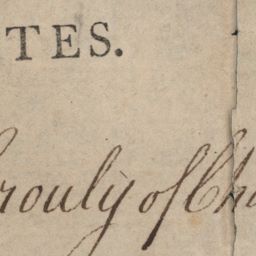 TES.
rouly of Ch